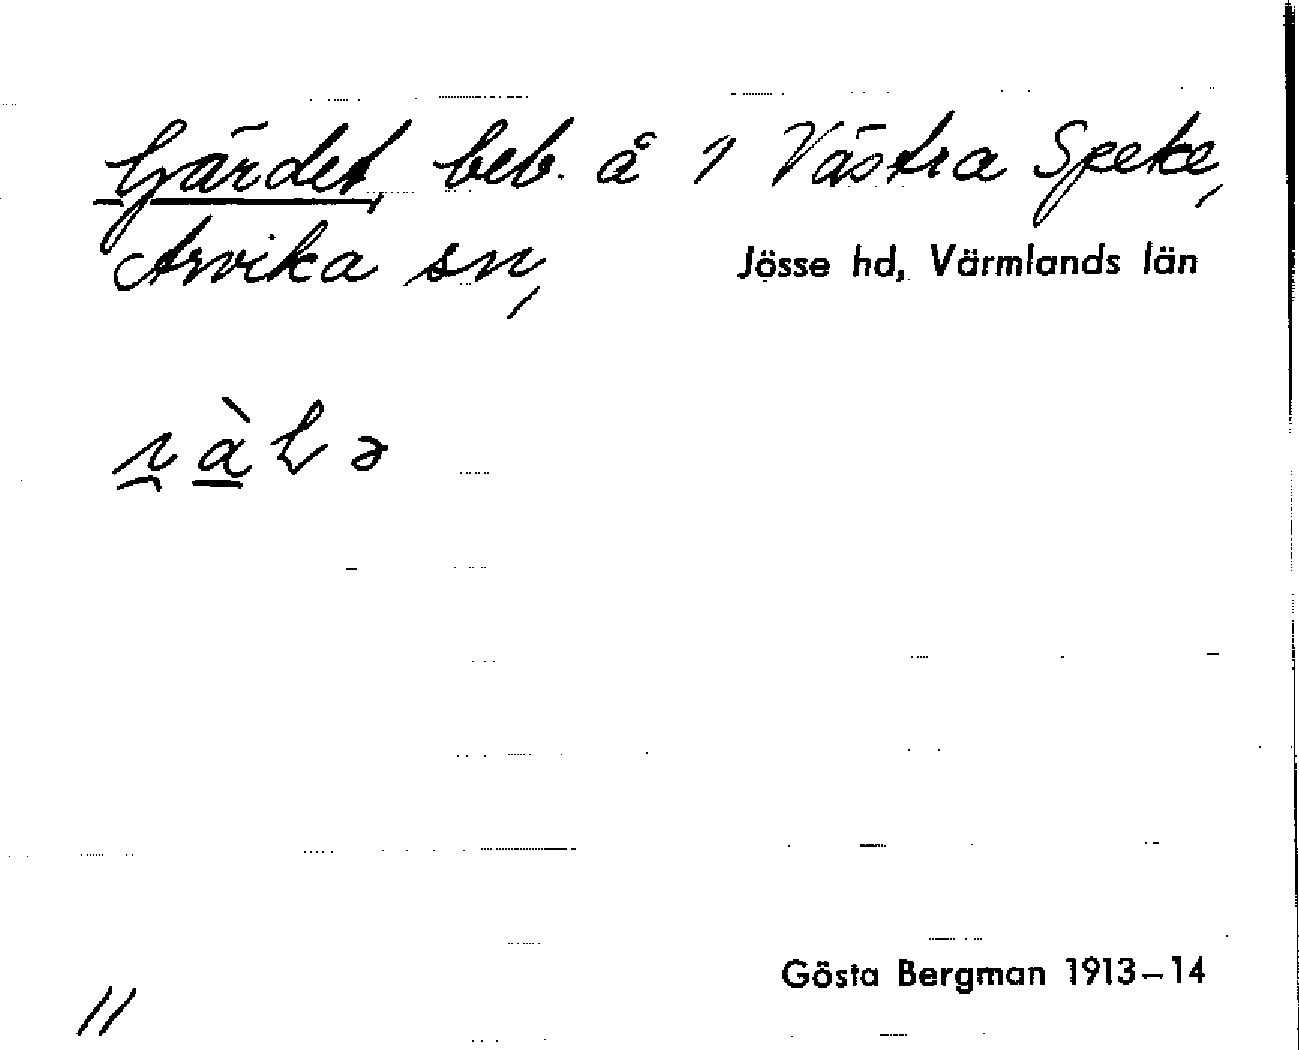 Gärdet, beb. å 1 Västra Speke,
Arvika sn, Jösse hd, Värmlands län
Gösta Bergman 1913–14
11